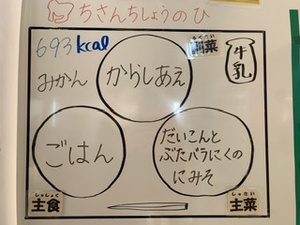 ちさんちしょうのひ
693kcal
ふくさい
副菜
牛乳
みかん
からしあえ
ごはん
だいこんと
ぶたバラにくの
にみそ
しゅしょく
主食
しゅさい
主菜